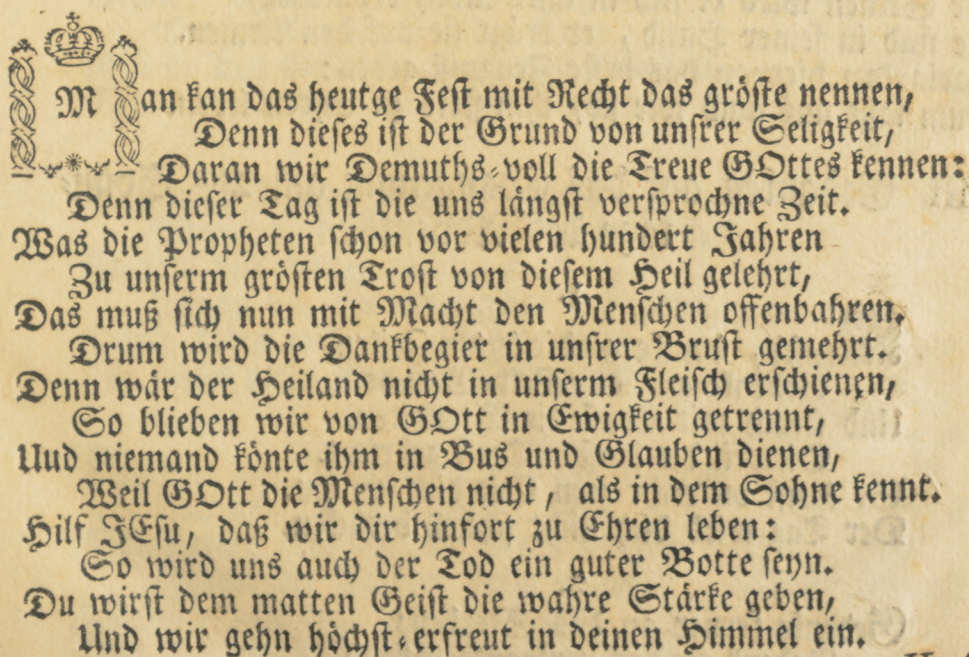 Man kan das heutge Fest mit Recht das gröste nennen,
Denn dieses ist der Grund von unsrer Seligkeit,
Daran wir Demuths-voll die Treue GOttes kennen:
Denn dieser Tag ist die uns längst versprochne Zeit.
Was die Propheten schon vor vielen hundert Jahren
Zu unserm grösten Trost von diesem Heil gelehrt,
Das muß sich nun mit Macht den Menschen offenbahren.
Drum wird die Dankbegier in unsrer Brust gemehrt.
Denn wär der Heiland nicht in unserm Fleisch erschienen,
So blieben wir von GOtt in Ewigkeit getrennt,
Uud niemand könte ihm in Bus und Glauben dienen,
Weil GOtt die Menschen nicht, als in dem Sohne kennt.
Hilf JEsu, daß wir dir hinfort zu Ehren leben:
So wird uns auch der Tod ein guter Botte seyn.
Du wirst dem matten Geist die wahre Stärke geben,
Und wir gehn höchst-erfreut in deinen Himmel ein.